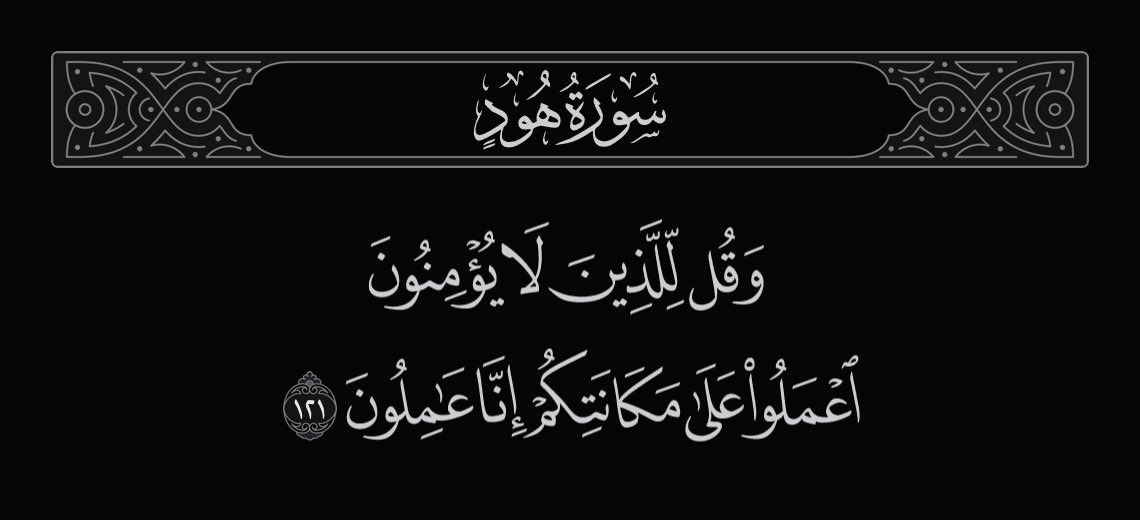 سُورَةُ هُودٍ
وَقُل لِّلَّذِينَ لَا يُؤْمِنُونَ
ٱعْمَلُوا۟ عَلَىٰ مَكَانَتِكُمْ إِنَّا عَـٰمِلُونَ ١٢١